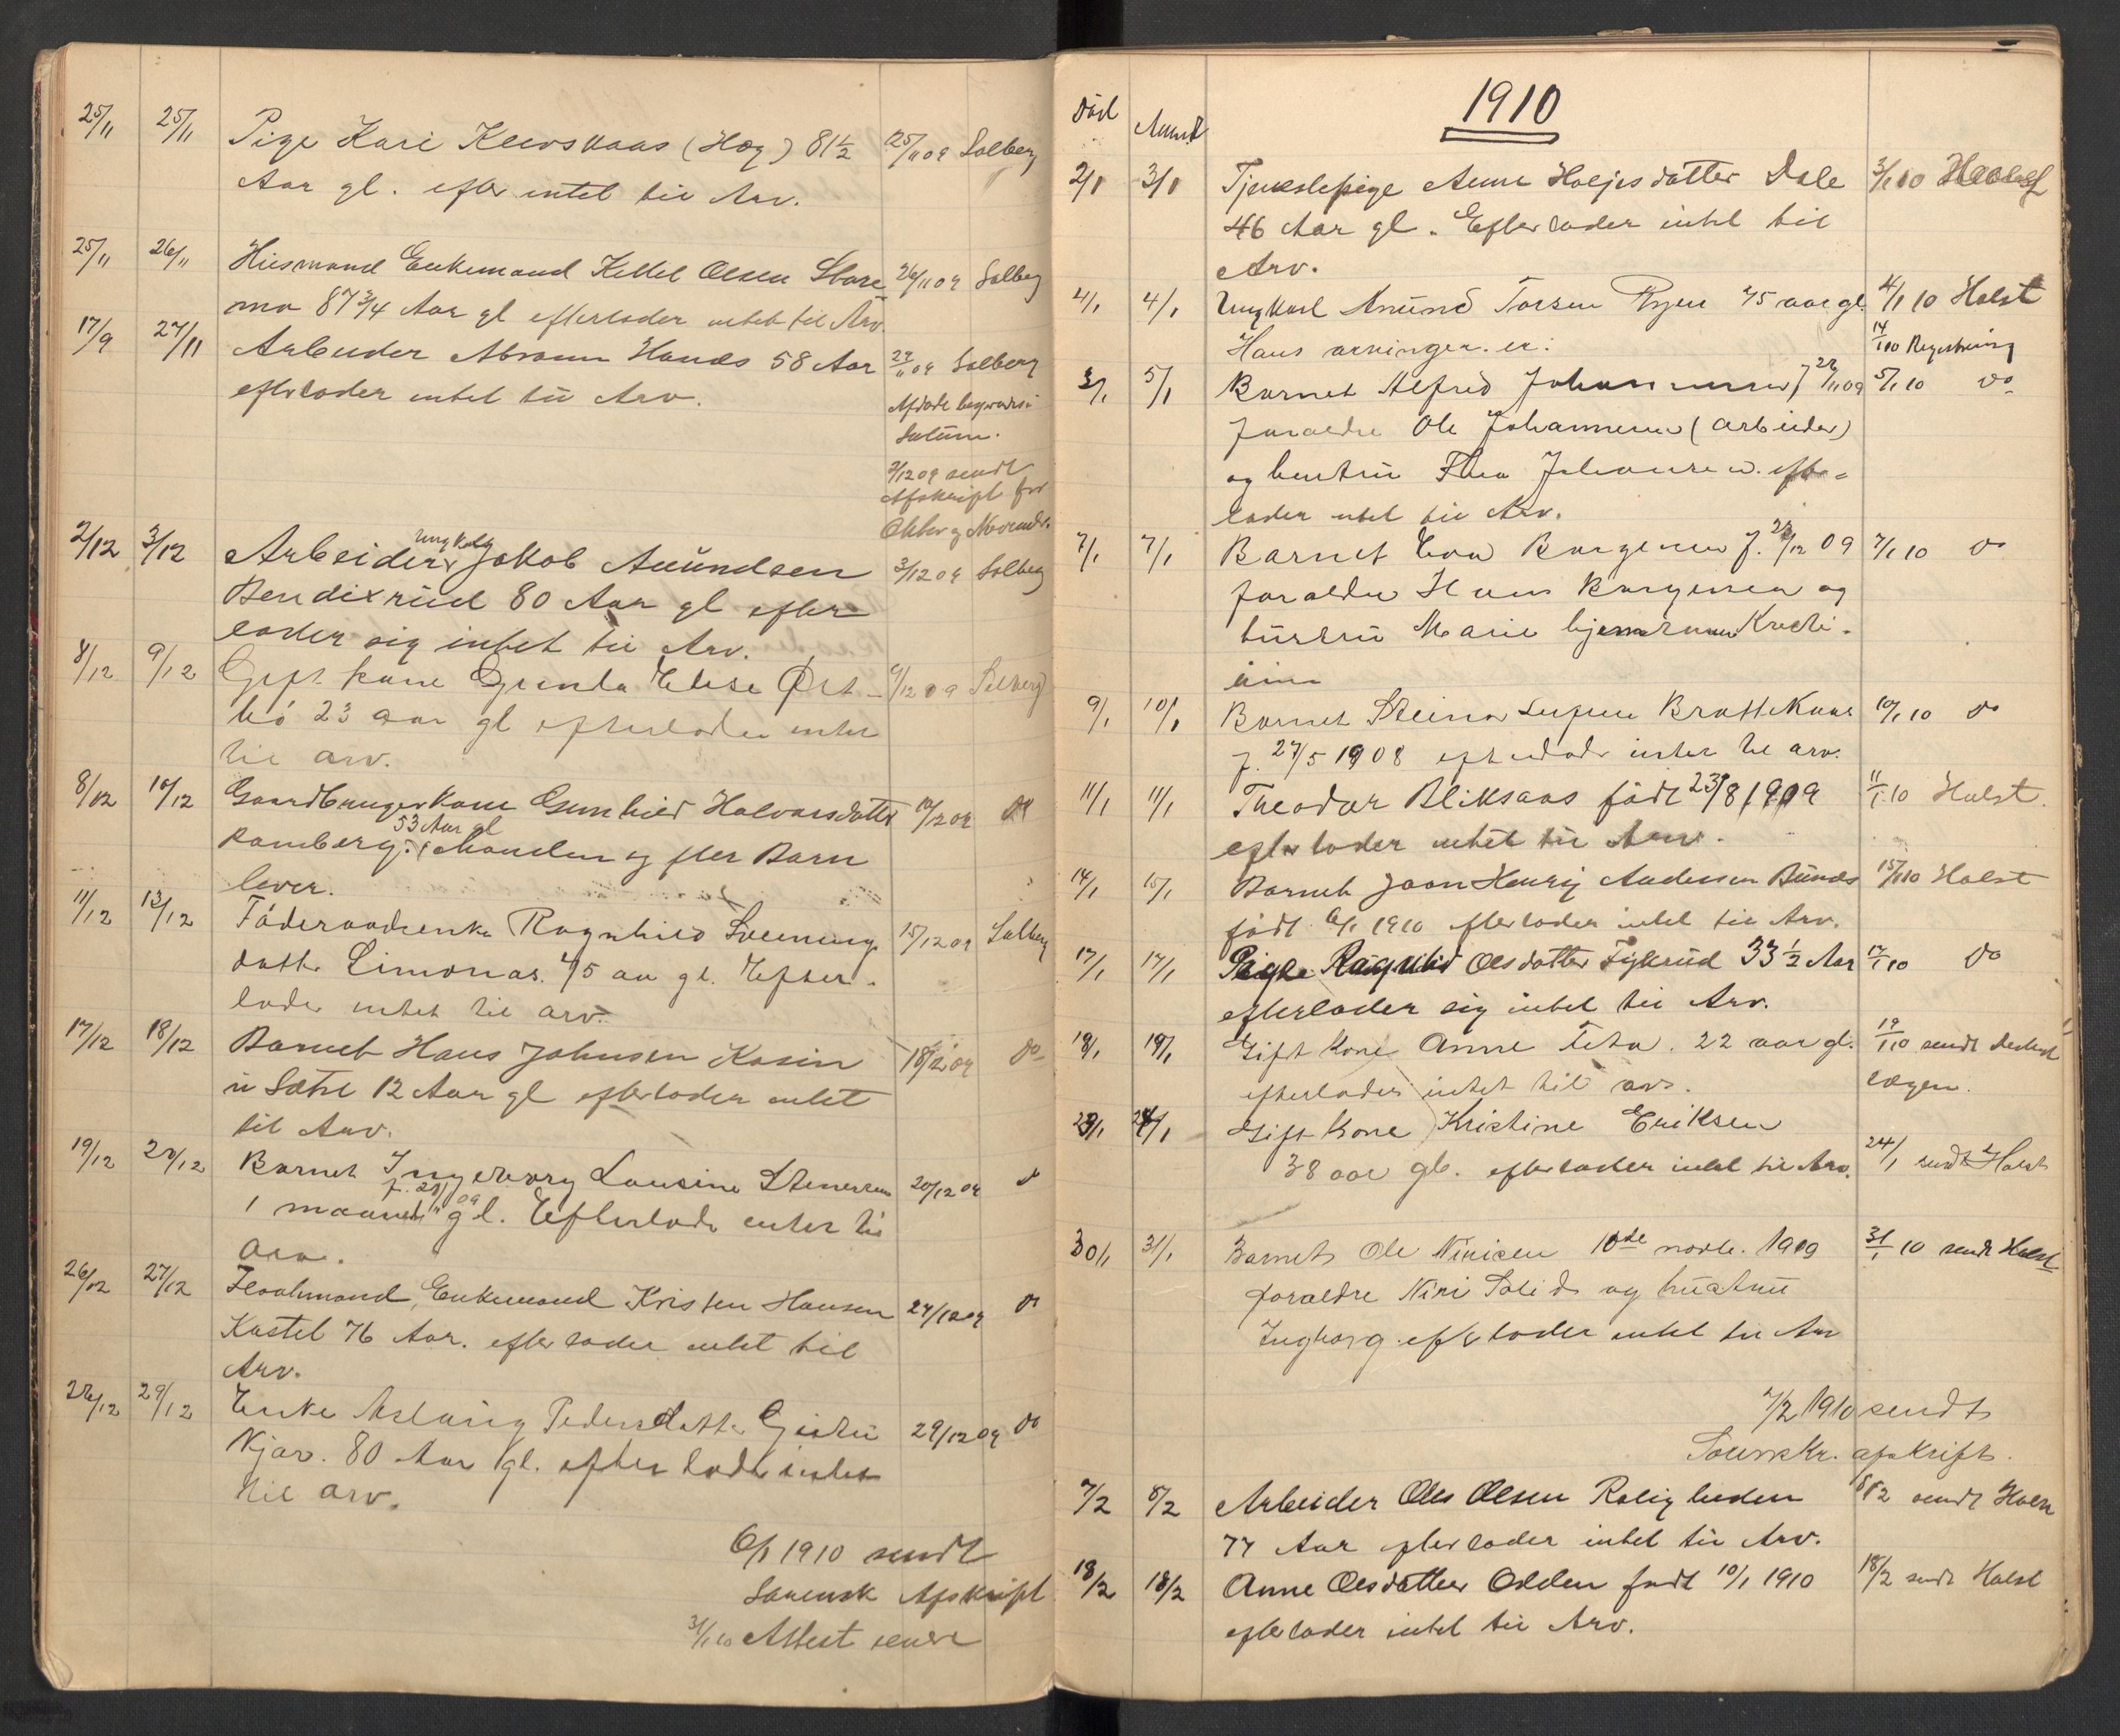 25/11 25/11 Pige Kari Kleivskaas (Hæg) 81 1/2 25/11 09 Solberg
Aar gl. efter intet til Arv.
25/11 26/11 Huusmand Enkemand Kittel Olsen Store 26/11 09 Solberg
mo 87 3/4 Aar gl efterlader intet til Arv.
17/9 27/11 Arbeider Abraam Hands 58 Aar 27/11 09 Solberg
efterlader intet til Arv. Afdøde begravedes i
Solum.
3/12 09 sendt
Afskrift for
Oktbr og Novembr.
2/12 3/12 Arbeider Ungkarl Jakob Amundsen 3/12 09 Solberg
Bendixrud 80 Aar gl efter
lader sig intet til Arv.
8/12 9/12 Gift kone Gunda Elise Øst- 9/12 09 Solberg
bö 23 aar gl efterlader intet
til arv.
8/12 10/12 Gaardbrugerkone Gunhild Halvorsdatter 10/12 09 do
Ramberg. 53 Aar gl Manden og fler Barn
lever.
11/12 13/12 Föderaadsenke Ragnhild Sveinung 15/12 09 Solberg
datter Limonas. 75 aar gl. Efter-
lader intet til arv.
17/12 18/12 Barnet Hans Johnsen Kasin 18/12 09 do
u Sætre 12 Aar gl efterlader intet
til Arv.
19/12 20/12 Barnet Ingeborg Lousine Stenersen 20/12 09 do
1 maaned f. 20/11 09 gl. Efterlader intet til
arv.
26/12 27/12 Enkemand Kristen Hansen 27/12 09 do
Kastet 76 Aar. efterlader intet til
Arv.
28/12 29/12 Enke Aslaug Pedersdatter 29/12 09 do
Kjær. 80 Aar gl. efterlader intet
til arv.
6/1 1910 sendt
Sorensk Afskrift
3/1 10 Attest
1910
Död Anmdt
2/1 3/1 Tjenestepige Anne Holjesdatter Dale 3/1 10
46 Aar gl. Efterlader intet til
Arv.
4/1 4/1 Ungkarl Amund Torsen Ryen 75 aar gl. 4/1 10 Holst
Hans arvinger er: 14/1 10 Registrering
3/1 5/1 Barnet Alfred Johannesen f 28/11 09 5/1 10 do
foraldre Ole Johannesen (arbeider)
og hustru Thea Johansen. efter-
lader intet til Arv.
7/1 7/1 Barnet Eva Borgersen f. 28/12 09 7/1 10 do
foraldre Hans Borgersen og
hustru Marie hjemme Kristi-
9/1 10/1 Barnet Steinar Brattekaas 10/1 10 do
f. 27/5 1908 efterlader intet til arv.
11/1 11/1 Theodor Bliksaas födt 23/8 1909 11/1 10 Holst.
efterlader intet til Arv.
14/1 15/1 Barnet Jaan Henrij Andersen Bunds 15/1 10 Holst
födt 6/1 1910 efterlader intet til Arv.
17/1 17/1 Pige Ragnhild Olsdatter Fykrud 33 1/2 Aar 17/1 10 do
efterlader sig intet til Arv.
19/1 19/1 Gift kone Anne Teta. 22 aar gl. 19/1 10 sendt
efterlader intet til arv. lægen.
23/1 24/1 Gift kone Kristine Eriksen
38 aar gl. efterlader intet til Arv. 24/1 sendt Holst
30/1 31/1 Barnet Ole Ninisen 10de novbr. 1909 31/1 10 sendt Holst
foraldre Nini Solid og hustru
Ingborg efterlader intet til Arv
7/2 1910 sendt
Sorenskr. afskrift.
7/2 8/2 Arbeider Ole Olsen Roligheden 8/2 sendt Holst
77 Aar efterlader intet til Arv.
18/2 18/2 Anne Olsdatter Odden født 10/1 1910 18/2 sendt Holst
efterlader intet til Arv.